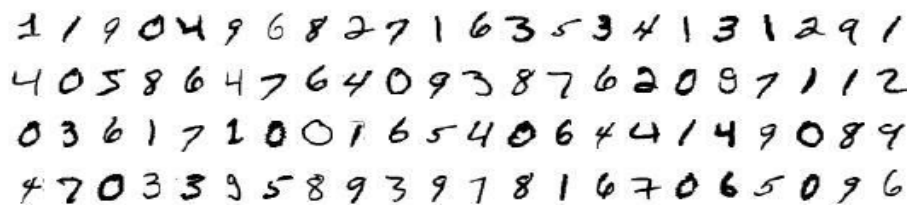 1 1 9 0 4 9 6 8 2 7 1 6 3 5 3 4 1 3 1 2 9 1
4 0 5 8 6 4 7 6 4 0 9 3 8 7 6 2 0 9 7 1 1 2
0 3 6 1 7 2 0 0 1 6 5 4 0 6 4 4 1 4 9 0 8 9
4 7 0 3 3 9 5 8 9 3 9 7 8 1 6 7 0 6 5 0 9 6